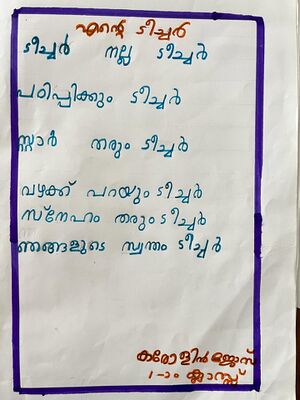 എന്റെ ടീച്ചർ
ടീച്ചർ നല്ല ടീച്ചർ
പഠിപ്പിക്കും ടീച്ചർ
സ്റ്റാർ തരും ടീച്ചർ
വഴക്ക് പറയും ടീച്ചർ
സ്നേഹം തരും ടീച്ചർ
ഞങ്ങളുടെ സ്വന്തം ടീച്ചർ
കരോളിൻ
1-ാം ക്ലാസ്സ്